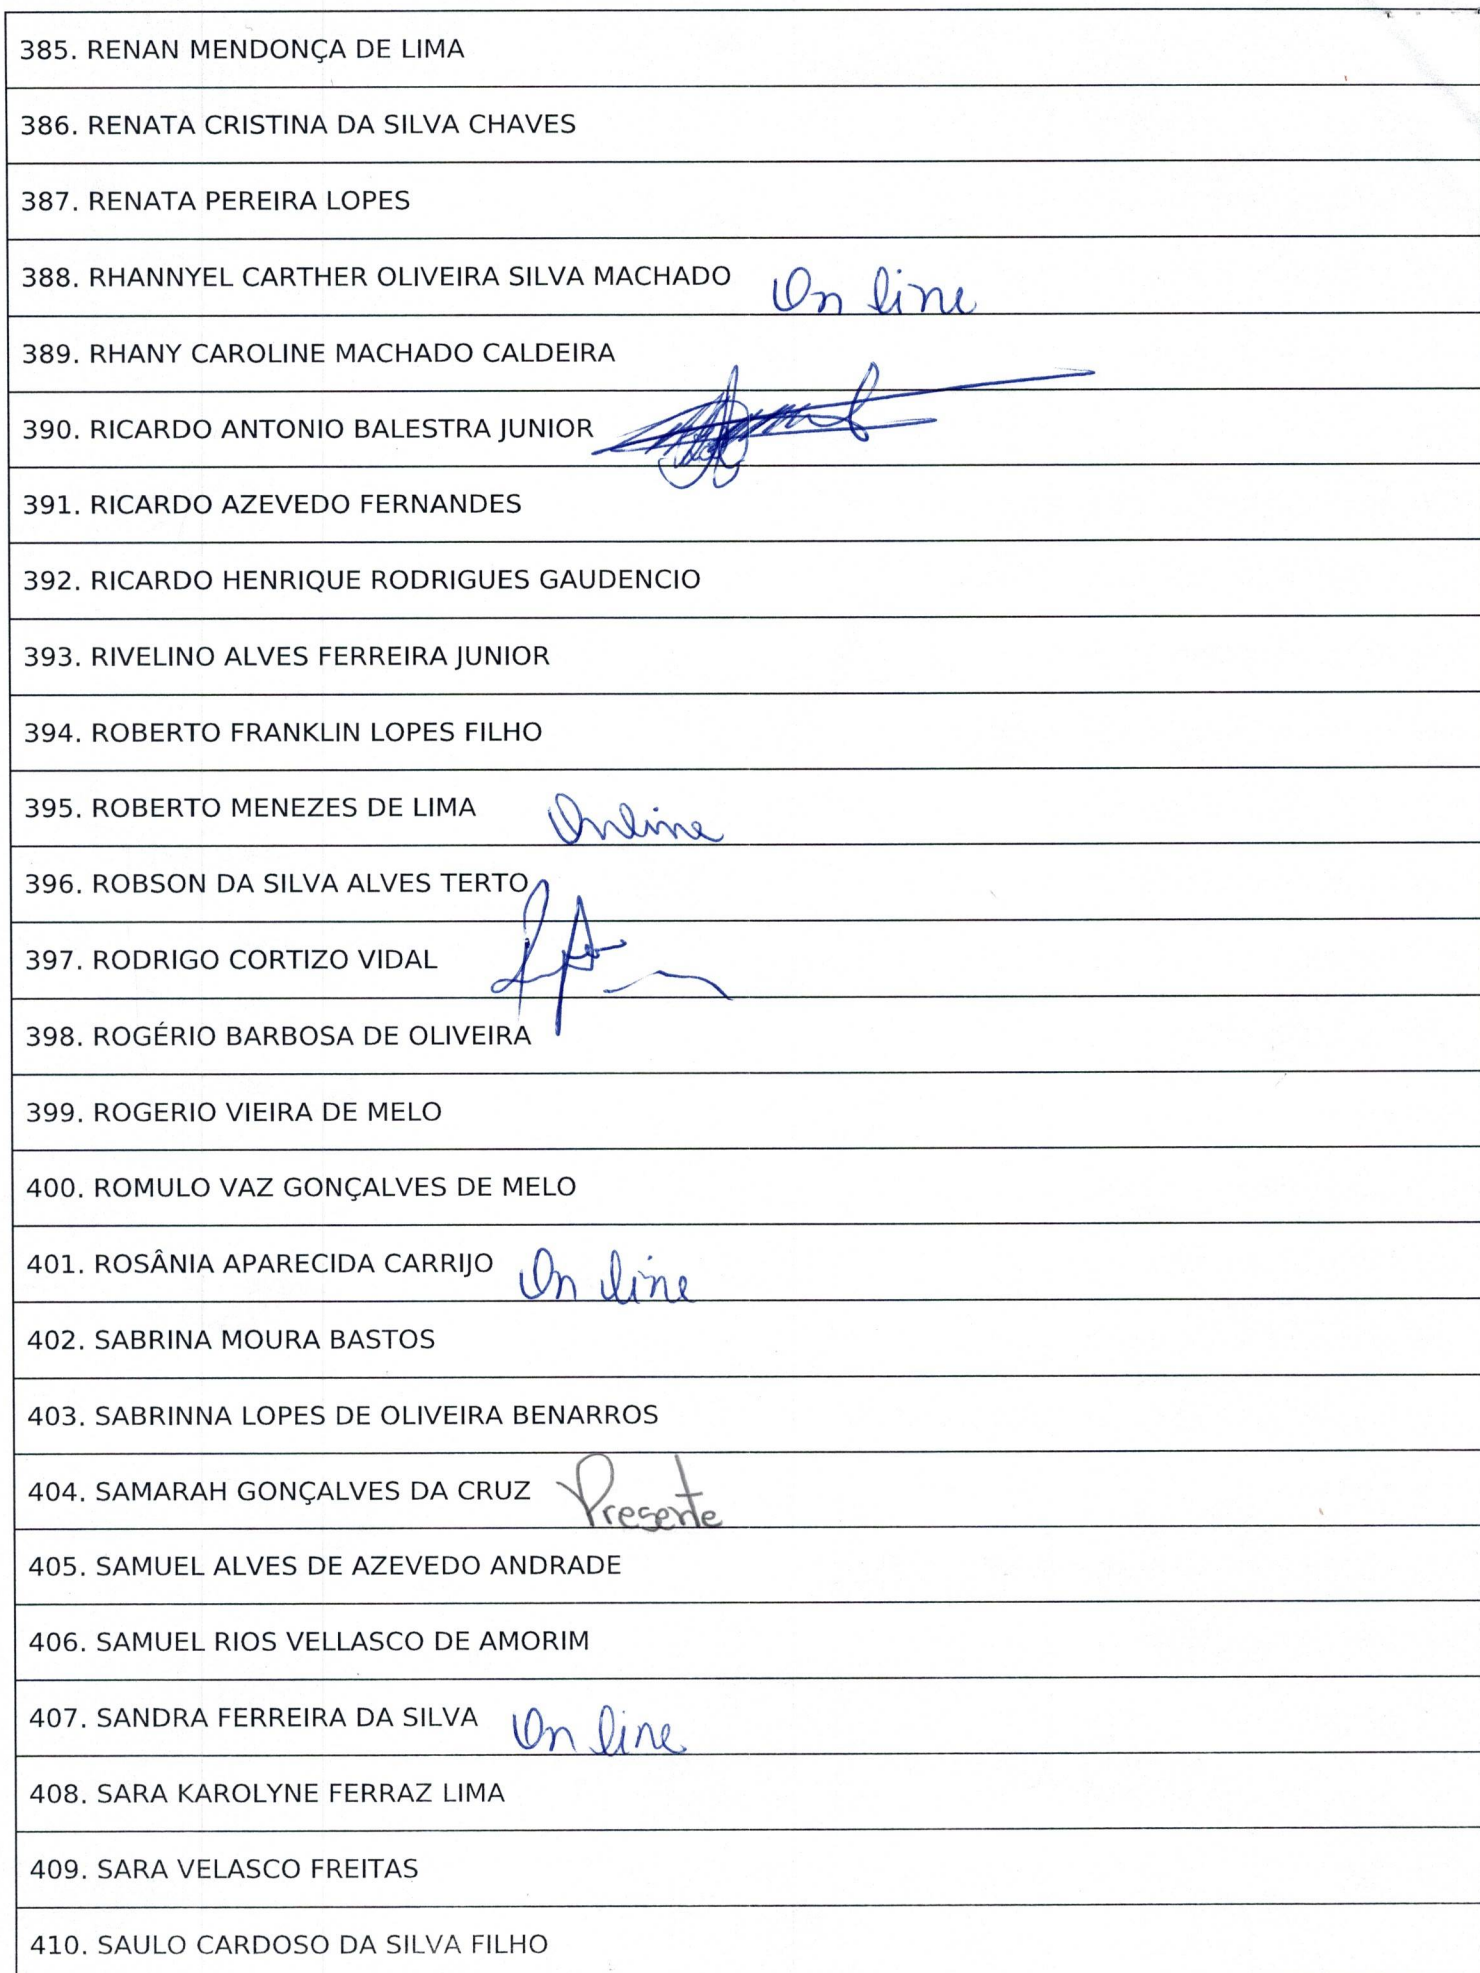 385. RENAN MENDONÇA DE LIMA
386. RENATA CRISTINA DA SILVA CHAVES
387. RENATA PEREIRA LOPES
388. RHANNYEL CARTHER OLIVEIRA SILVA MACHADO On line
389. RHANY CAROLINE MACHADO CALDEIRA
390. RICARDO ANTONIO BALESTRA JUNIOR
391. RICARDO AZEVEDO FERNANDES
392. RICARDO HENRIQUE RODRIGUES GAUDENCIO
393. RIVELINO ALVES FERREIRA JUNIOR
394. ROBERTO FRANKLIN LOPES FILHO
395. ROBERTO MENEZES DE LIMA Online
396. ROBSON DA SILVA ALVES TERTO
397. RODRIGO CORTIZO VIDAL
398. ROGÉRIO BARBOSA DE OLIVEIRA
399. ROGERIO VIEIRA DE MELO
400. ROMULO VAZ GONÇALVES DE MELO
401. ROSÂNIA APARECIDA CARRIJO On line
402. SABRINA MOURA BASTOS
403. SABRINNA LOPES DE OLIVEIRA BENARROS
404. SAMARAH GONÇALVES DA CRUZ Presente
405. SAMUEL ALVES DE AZEVEDO ANDRADE
406. SAMUEL RIOS VELLASCO DE AMORIM
407. SANDRA FERREIRA DA SILVA On line
408. SARA KAROLYNE FERRAZ LIMA
409. SARA VELASCO FREITAS
410. SAULO CARDOSO DA SILVA FILHO